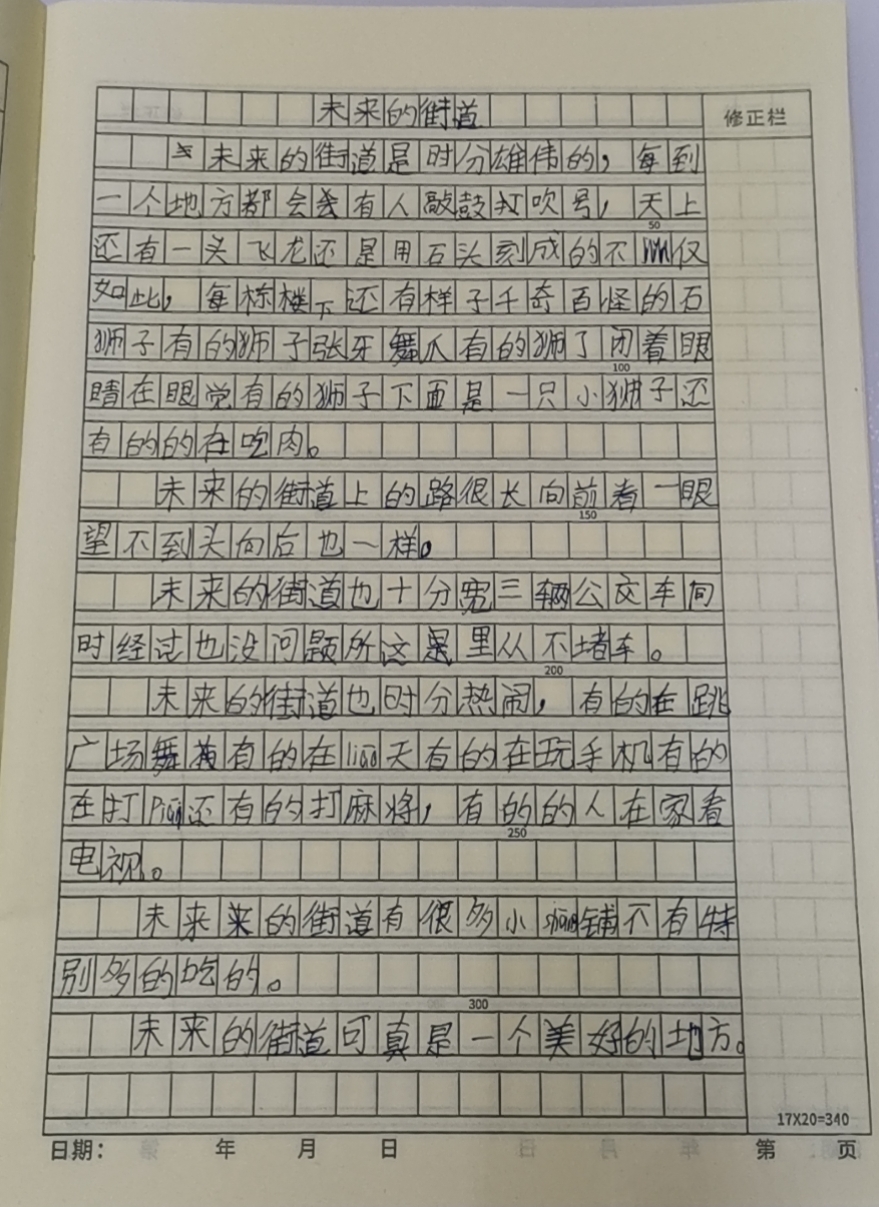 未来的街道
修正栏
未来的街道是时分雄伟的，每到
一个地方都会有人敲鼓打吹号，天上
50
还有一头飞龙还是用石头刻成的不仅
如此，每栋楼下还有样子千奇百怪的石
狮子有的狮子张牙舞爪有的狮了闭着眼
100
睛在眼觉有的狮子下面是一只小狮子还
有的的在吃肉。
未来的街道上的路很长向前看一眼
150
望不到头向后也一样。
未来的街道也十分宽三辆公交车同
时经过也没问题所这是里从不堵车。
200
未来的街道也时分热闹，有的在跳
广场舞有的在liao天有的在玩手机有的
在打Pai还有的打麻将，有的的人在家看
250
电视。
未来来的街道有很多小铺不有特
别多的吃的。
300
未来的街道可真是一个美好的地方。
17X20=340
日期： 年 月 日 第 页